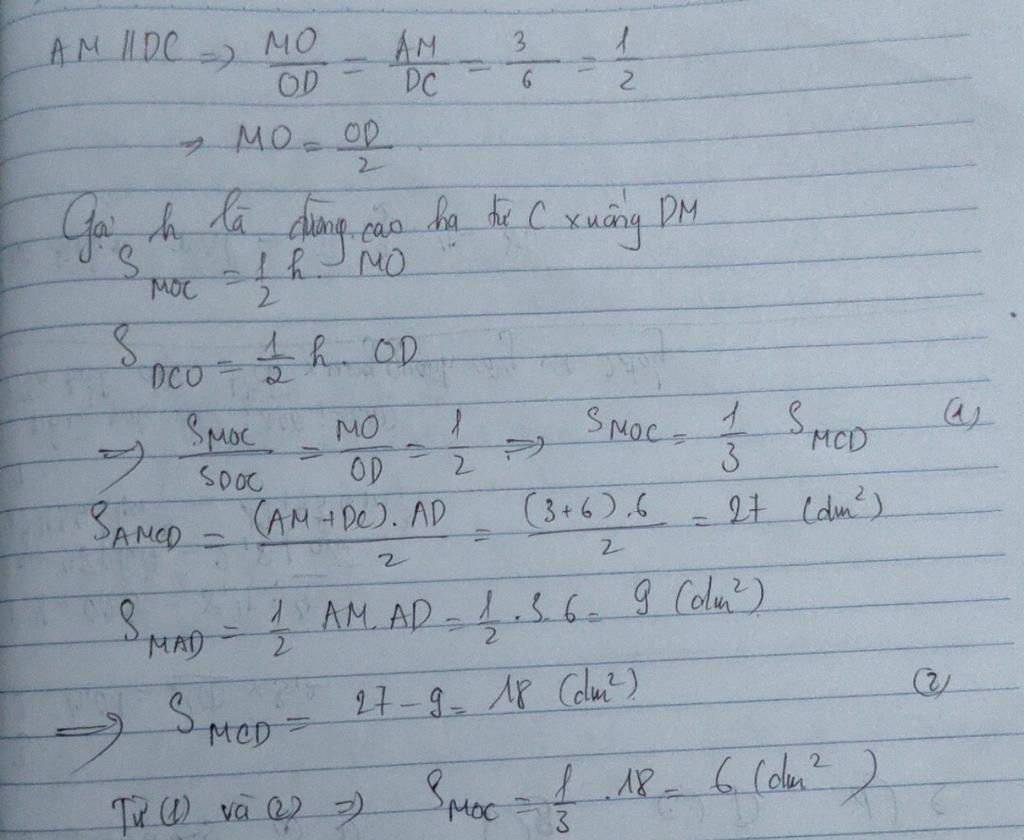 AM // DC => MO/OD = AM/DC = 3/6 = 1/2
=> MO = OD/2
Gọi h là đường cao hạ từ C xuống DM
S_MOC = 1/2 h. MO
S_DCO = 1/2 h. OD
=> S_MOC/S_DOC = MO/OD = 1/2 => S_MOC = 1/3 S_MCD (1)
S_AMCD = (AM+DC).AD/2 = (3+6).6/2 = 27 (dm²)
S_MAD = 1/2 AM.AD = 1/2 .3.6 = 9 (dm²)
=> S_MCD = 27-9 = 18 (dm²) (2)
Từ (1) và (2) => S_MOC = 1/3 .18 = 6 (dm²)